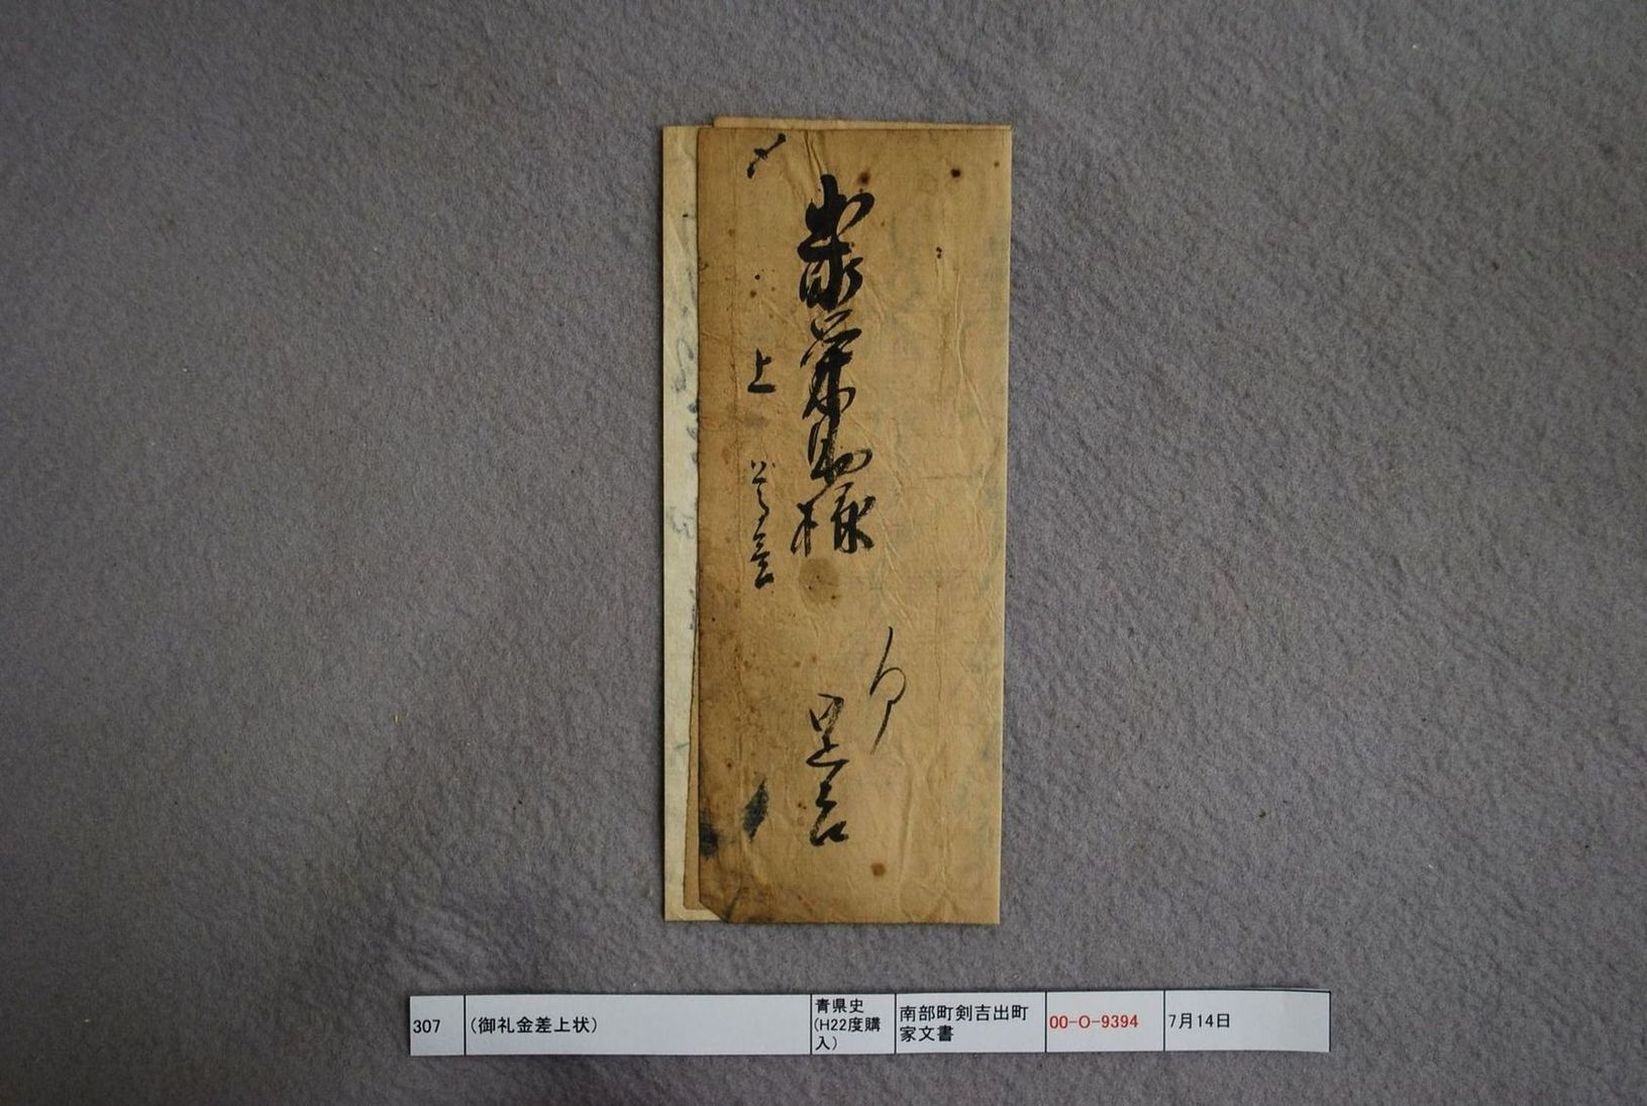 〆
栄助様
上
足吉
307
(御礼金差上状)
青県史
(H22度購
入)
南部町剣吉出町
家文書
00-O-9394
7月14日